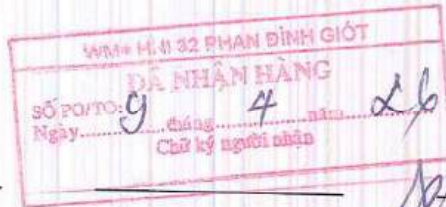 WM+ HNI 32 PHAN ĐÌNH GIÓT
ĐÃ NHẬN HÀNG
SỐ PO/TO:
Ngày 9 tháng 4 năm 26
Chữ ký người nhận